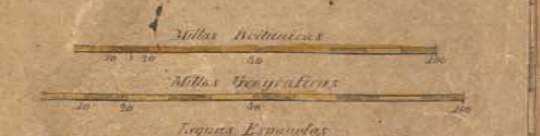 Millas Britanicas
10 20 50 100
Millas Geograficas
10 20 50 100
Leguas Españolas